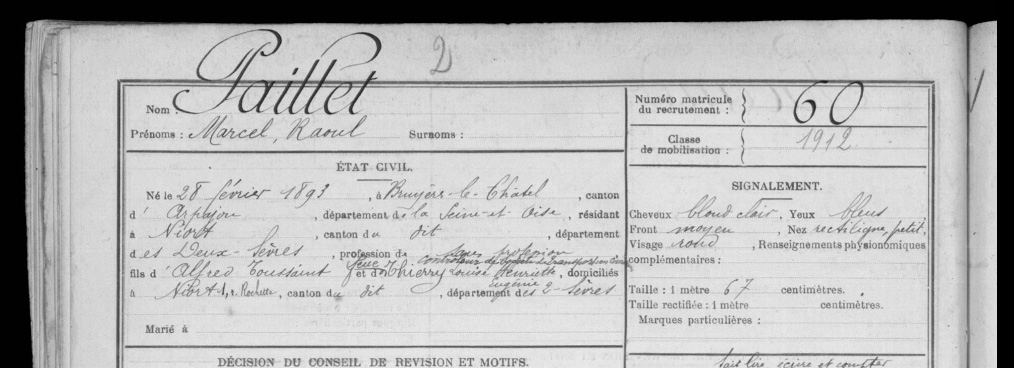 2
Nom : Paillet
Prénoms : Marcel, Raoul Surnoms :
Numéro matricule du recrutement : 60
Classe de mobilisation : 1912
ÉTAT CIVIL.
Né le 28 février 1893, à Bruyères-le-Châtel, canton
d'Arpajon, département de la Seine-et-Oise, résidant
à Niort, canton du dit, département
des Deux-Sèvres, profession de sans profession
fils d'Alfred Toussaint feue et de Thierry Louise Henriette, domiciliés
Eugénie
à Niort 1, r. Rochette, canton du dit, département des 2-Sèvres
Marié à
SIGNALEMENT.
Cheveux blond clair, Yeux bleus
Front moyen, Nez rectiligne, petit,
Visage rond, Renseignements physionomiques
complémentaires :
Taille : 1 mètre 67 centimètres.
Taille rectifiée : 1 mètre centimètres.
Marques particulières :
DÉCISION DU CONSEIL DE REVISION ET MOTIFS.
Sait lire écrire et compter